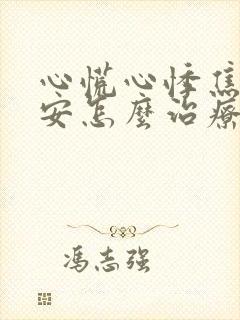 心慌心悸焦
安怎麼治療
冯志强